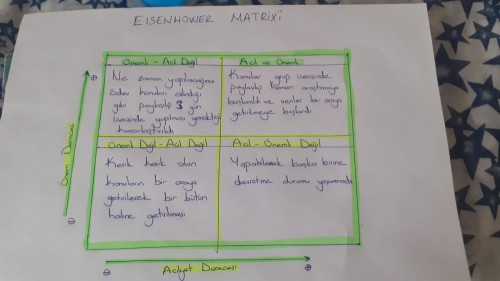 EISENHOWER MATRIXI
Önemli - Acil Değil
Ne zaman yapılacağına
ödev konuları alındığı
gibi paylaşılıp 3 gün
içerisinde yapılması gerektiği
kararlaştırıldı
Acil ve Önemli
Konular grup içerisinde
paylaşılıp hemen araştırmaya
başlanıldı ve veriler bir araya
getirilmeye başlandı.
Önemli Değil - Acil Değil
Kesik kesik olan
konuların bir araya
getirilerek bir bütün
haline getirilmesi
Acil - Önemli Değil
Yapılabilecek başka birine
devretme durumu yaşanmadı
Önem Derecesi
Aciliyet Derecesi